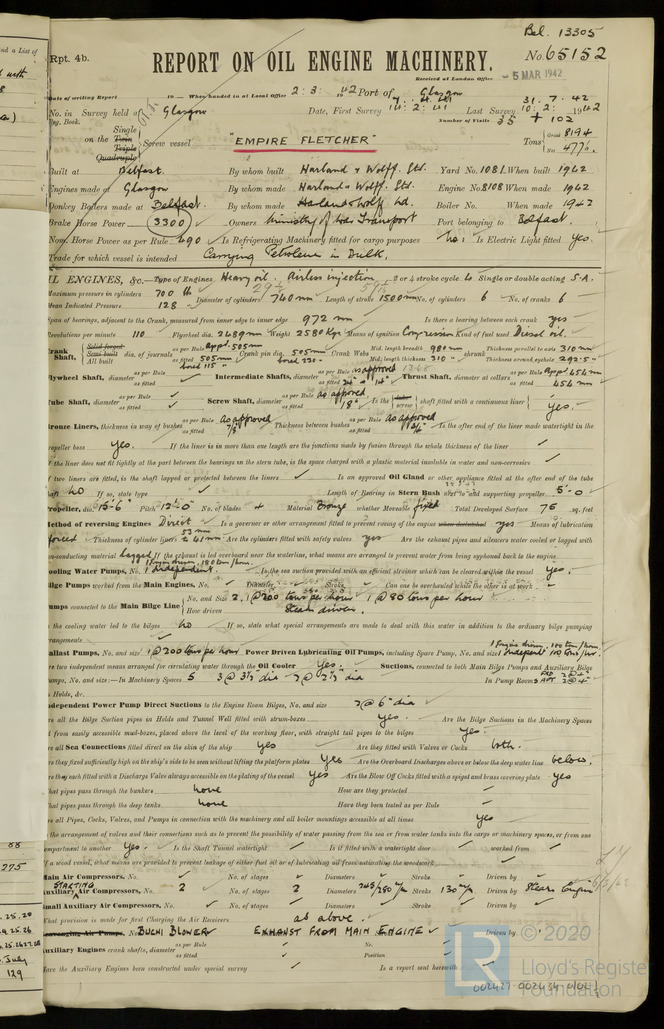 Bel. 13305
Rpt. 4b.
REPORT ON OIL ENGINE MACHINERY.
No. 65152
Received at London Office
- 5 MAR 1942
Date of writing Report 19 When handed in at Local Office 2. 3. 1942 Port of Glasgow
No. in Survey held at Glasgow Date, First Survey 14. 2. 41 Last Survey 10. 2. 1942
Reg. Book. Number of Visits 35 + 102
Single
on the Twin Triple Quadruple Screw vessel "EMPIRE FLETCHER" Tons Gross 8194 Net 4776
Built at Belfast By whom built Harland & Wolff Ltd. Yard No. 1081 When built 1942
Engines made at Glasgow By whom made Harland & Wolff Ltd. Engine No. 8108 When made 1942
Donkey Boilers made at Belfast By whom made Harland & Wolff Ltd. Boiler No. When made 1942
Brake Horse Power 3300 Owners Ministry of War Transport Port belonging to Belfast.
Nom. Horse Power as per Rule 490 Is Refrigerating Machinery fitted for cargo purposes No. Is Electric Light fitted Yes.
Trade for which vessel is intended Carrying Petroleum in Bulk.
OIL ENGINES, &c. Type of Engines Heavy oil. Airless injection 2 or 4 stroke cycle 4 Single or double acting S.A.
Maximum pressure in cylinders 700 lb Diameter of cylinders 740 mm Length of stroke 1500 mm No. of cylinders 6 No. of cranks 6
Mean Indicated Pressure 128
Span of bearings, adjacent to the Crank, measured from inner edge to inner edge 972 mm Is there a bearing between each crank yes
Revolutions per minute 110 Flywheel dia. 2489 mm Weight 2580 Kgs Means of ignition Compression Kind of fuel used Diesel oil.
Crank Shaft, Solid forged Semi built All built dia. of journals as per Rule Appd. 505 mm as fitted 505 mm Crank pin dia. 505 mm Crank Webs Mid. length breadth 980 mm Mid. length thickness 310 shrunk Thickness parallel to axis 310 mm Thickness around eyehole 292.5
Flywheel Shafts, diameter as per Rule as fitted Intermediate Shafts, diameter as per Rule as approved as fitted Thrust Shaft, diameter at collars as per Rule App. 454 mm as fitted 454 mm
Tube Shaft, diameter as per Rule as fitted Screw Shaft, diameter as per Rule as approved as fitted 18" Is the tube screw shaft fitted with a continuous liner Yes.
Bronze Liners, thickness in way of bushes as per Rule as approved as fitted 7/8" Thickness between bushes as per Rule as approved as fitted Is the after end of the liner made watertight in the
propeller boss Yes. If the liner is in more than one length are the junctions made by fusion through the whole thickness of the liner
If the liner does not fit tightly at the part between the bearings in the stern tube, is the space charged with a plastic material insoluble in water and non-corrosive
If two liners are fitted, is the shaft lapped or protected between the liners Is an approved Oil Gland or other appliance fitted at the after end of the tube
shaft No If so, state type Length of Bearing in Stern Bush next to and supporting propeller 5'-0
Propeller, dia. 15'-6" Pitch 12'-0" No. of blades 4 Material Bronze whether Moveable fixed Total Developed Surface 75 sq. feet
Method of reversing Engines Direct Is a governor or other arrangement fitted to prevent racing of the engine yes Means of lubrication
forced Thickness of cylinder liners 53 mm Are the cylinders fitted with safety valves yes Are the exhaust pipes and silencers water cooled or lagged with
non-conducting material lagged If the exhaust is led overboard near the waterline, what means are arranged to prevent water being syphoned back to the engine
Cooling Water Pumps, No. 1 Engine driven, 180 tons/hour. 1 Independent. Is the sea suction provided with an efficient strainer which can be cleared within the vessel Yes.
Bilge Pumps worked from the Main Engines, No. Diameter Stroke Can one be overhauled while the other is at work
Pumps connected to the Main Bilge Line No. and Size 2. 1 @ 200 tons per hour 1 @ 80 tons per hour
How driven Steam driven.
Is the cooling water led to the bilges No If so, state what special arrangements are made to deal with this water in addition to the ordinary bilge pumping
arrangements
Ballast Pumps, No. and size 1 @ 200 tons per hour Power Driven Lubricating Oil Pumps, including Spare Pump, No. and size 1 Engine driven, 100 tons/hour. 1 Independent 100 tons/hr.
Are two independent means arranged for circulating water through the Oil Cooler Yes. Suctions, connected to both Main Bilge Pumps and Auxiliary Bilge
Pumps, No. and size:—In Machinery Spaces 5 3 @ 3½ dia 2 @ 2½ dia In Pump Rooms
In Holds, &c.
Independent Power Pump Direct Suctions to the Engine Room Bilges, No. and size 2 @ 6" dia
Are all the Bilge Suction pipes in Holds and Tunnel Well fitted with strum-boxes Yes. Are the Bilge Suctions in the Machinery Spaces
led from easily accessible mud-boxes, placed above the level of the working floor, with straight tail pipes to the bilges Yes.
Are all Sea Connections fitted direct on the skin of the ship Yes Are they fitted with Valves or Cocks both.
Are they fixed sufficiently high on the ship's side to be seen without lifting the platform plates Yes Are the Overboard Discharges above or below the deep water line below.
Are they each fitted with a Discharge Valve always accessible on the plating of the vessel Yes Are the Blow Off Cocks fitted with a spigot and brass covering plate Yes
What pipes pass through the bunkers None How are they protected
What pipes pass through the deep tanks None Have they been tested as per Rule
Are all Pipes, Cocks, Valves, and Pumps in connection with the machinery and all boiler mountings accessible at all times Yes
Is the arrangement of valves and their connections such as to prevent the possibility of water passing from the sea or from water tanks into the cargo or machinery spaces, or from one
compartment to another Yes. Is the Shaft Tunnel watertight Is it fitted with a watertight door worked from
If a wood vessel, what means are provided to prevent leakage of either fuel oil or of lubricating oil from saturating the woodwork
Main Air Compressors, No. No. of stages Diameters Stroke Driven by
STARTING Auxiliary Air Compressors, No. 2 No. of stages 2 Diameters 245/280 m/m Stroke 130 m/m Driven by Steam Engine
Small Auxiliary Air Compressors, No. No. of stages Diameters Stroke Driven by
What provision is made for first Charging the Air Receivers as above.
Scavenging Air Pumps, No. BUCHI BLOWER EXHAUST FROM MAIN ENGINE Driven by
Auxiliary Engines crank shafts, diameter as per Rule as fitted No. Position
Have the Auxiliary Engines been constructed under special survey Is a report sent herewith
LR © 2020
Lloyd's Register
Foundation
275
129